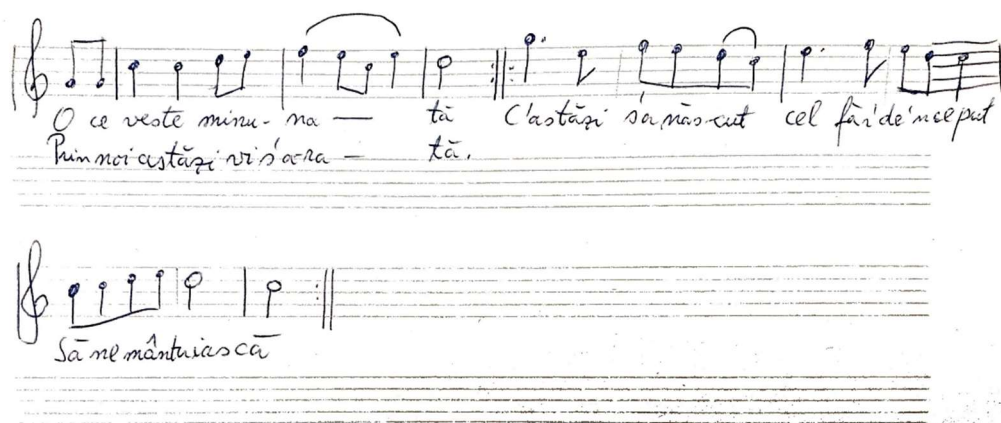 O ce veste minu-na — tă C'astăzi s'a născut cel făr'de'nceput
Prin noi astăzi vi s'ara — tă.
Să ne mântuiască